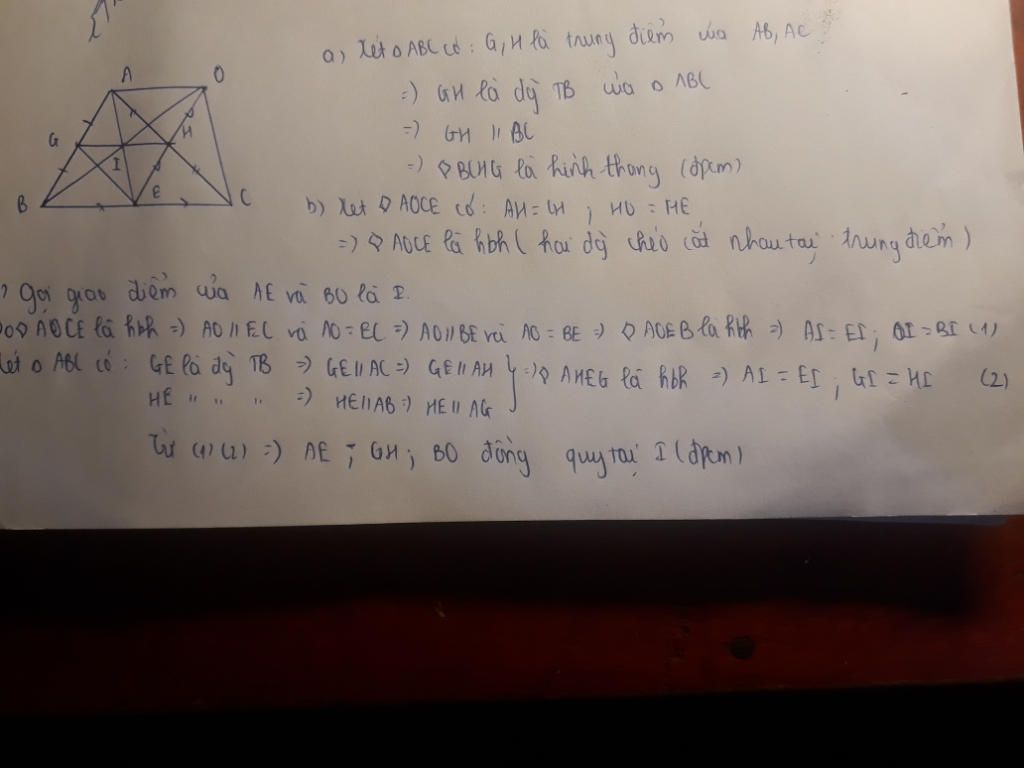 a) Xét △ ABC có : G, H là trung điểm của AB, AC
=) GH là đg̀ TB của △ ABC
=) GH // BC
=) ◊ BCHG là hình thang (đpcm)
b) Xét ◊ AOCE có : AH = CH ; HO = HE
=) ◊ AOCE là hbh ( hai đg̀ chéo cắt nhau tại trung điểm )
A
O
G
H
I
B
E
C
) Gọi giao điểm của AE và BO là I.
◊ AOCE là hbh =) AO // EC và AO = EC =) AO // BE và AO = BE =) ◊ AOEB là hbh =) AI = EI ; OI = BI (1)
Xét △ ABC có : GE là đg̀ TB =) GE // AC =) GE // AH } =) ◊ AHEG là hbh =) AI = EI ; GI = HI (2)
HE " " " =) HE // AB =) HE // AG
Từ (1) (2) =) AE ; GH ; BO đồng quy tại I (đpcm)